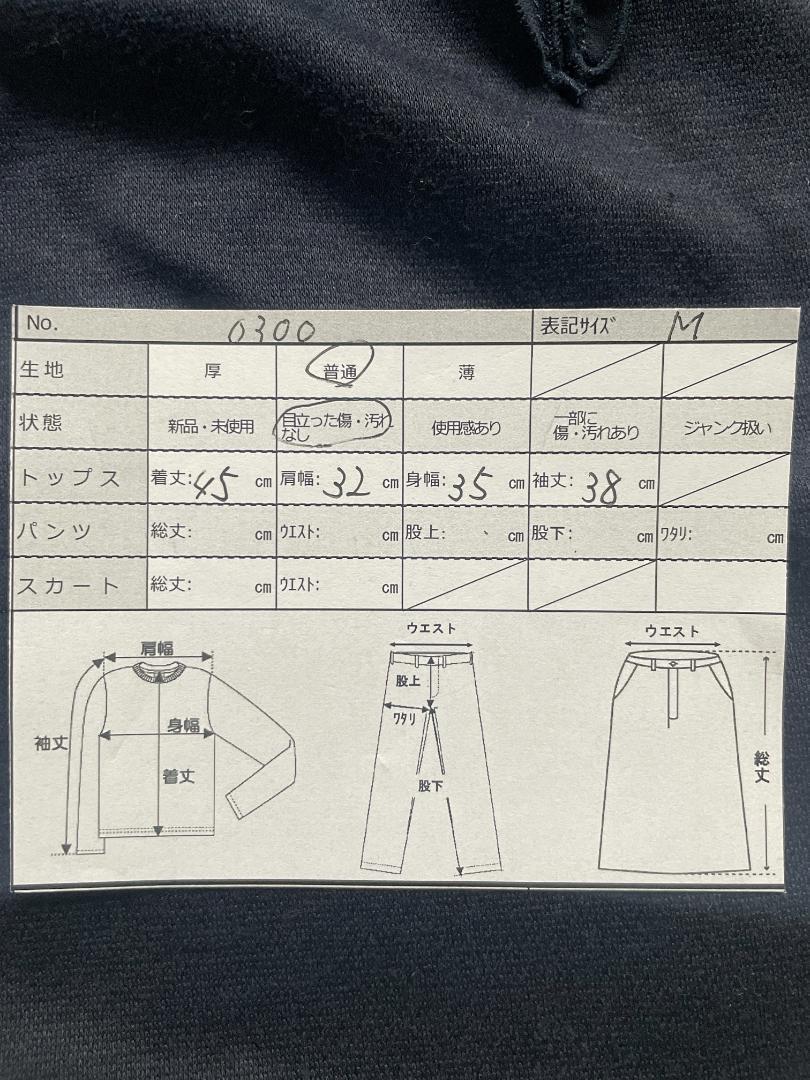 No. 0300 表記サイズ M
生地 厚 普通 薄
状態 新品・未使用 目立った傷・汚れなし 使用感あり 一部に傷・汚れあり ジャンク扱い
トップス 着丈:45 cm 肩幅:32 cm 身幅:35 cm 袖丈:38 cm
パンツ 総丈: cm ウエスト: cm 股上: cm 股下: cm ワタリ: cm
スカート 総丈: cm ウエスト: cm
肩幅
身幅
袖丈
着丈
ウエスト
股上
ワタリ
股下
ウエスト
総丈